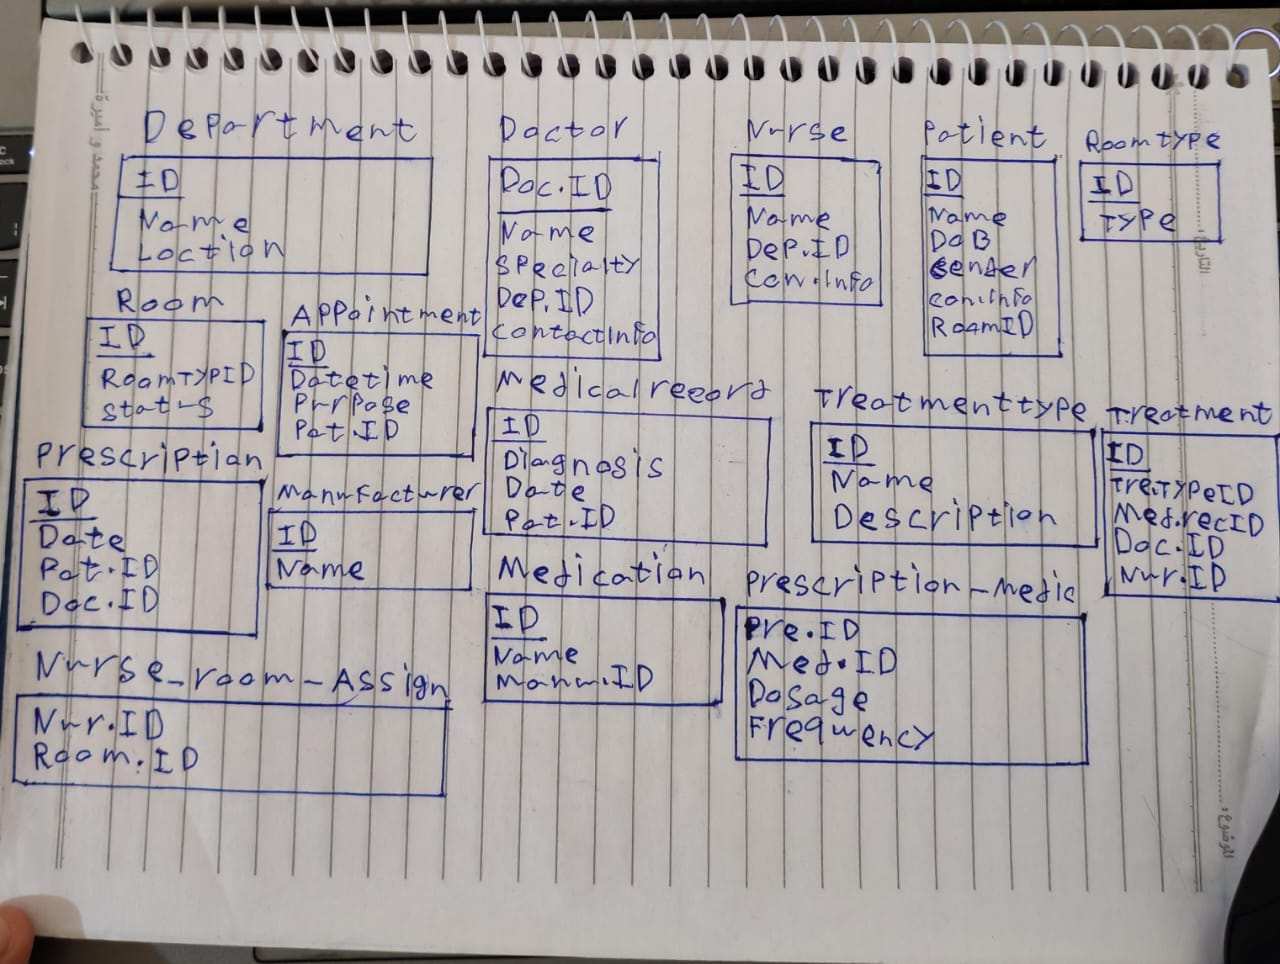 Department
ID
Name
Location
Doctor
Doc.ID
Name
Specialty
Dep.ID
ContactInfo
Nurse
ID
Name
Dep.ID
Con.Info
Patient
ID
Name
DoB
Gender
Con.Info
RoomID
Roomtype
ID
Type
Room
ID
RoomTypID
Status
Appointment
ID
Datetime
Purpose
Pat.ID
Medicalrecord
ID
Diagnosis
Date
Pat.ID
Treatmenttype
ID
Name
Description
Treatment
ID
Tre.TypeID
Med.recID
Doc.ID
Nur.ID
Prescription
ID
Date
Pat.ID
Doc.ID
Manufacturer
ID
Name
Medication
ID
Name
Manu.ID
Prescription_Medic
Pre.ID
Med.ID
Dosage
Frequency
Nurse_room_Assign
Nur.ID
Room.ID
التاريخ:
الموضوع: